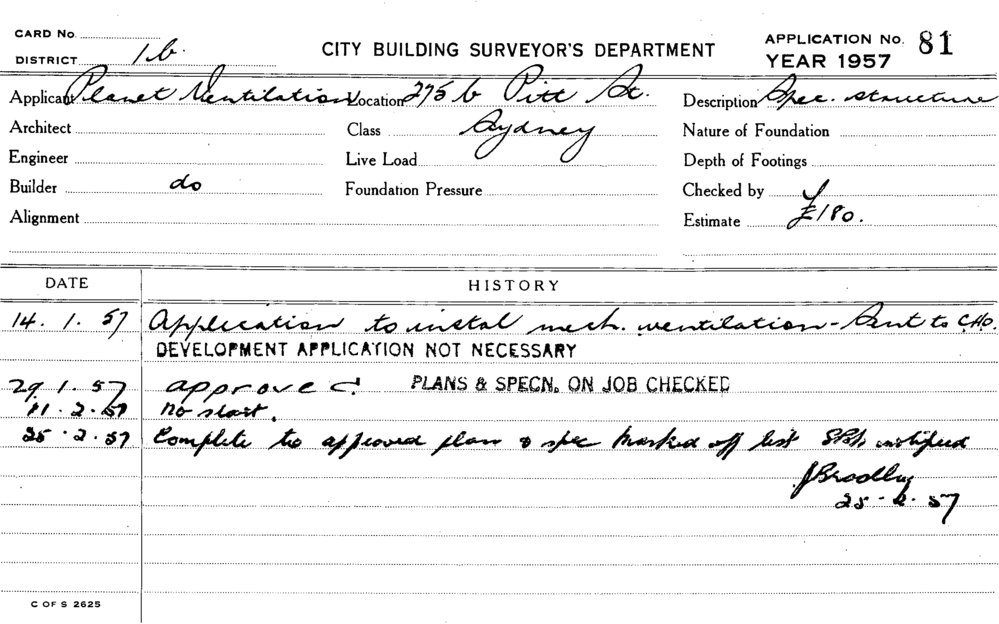 CARD No.
DISTRICT 1b.
CITY BUILDING SURVEYOR'S DEPARTMENT
APPLICATION No. 81
YEAR 1957
Applicant Planet Ventilation Location 275b Pitt St. Description Spec. structure
Architect Class Sydney Nature of Foundation
Engineer Live Load Depth of Footings
Builder do Foundation Pressure Checked by
Alignment Estimate £180.
DATE HISTORY
14. 1. 57 Application to instal mech. ventilation - Sent to C.H.O.
DEVELOPMENT APPLICATION NOT NECESSARY
29. 1. 57 approved PLANS & SPECN. ON JOB CHECKED
11. 2. 57 no start.
25. 2. 57 Complete to approved plan & spec marked off list notified
J Bradley
25. 2. 57
C OF S 2625